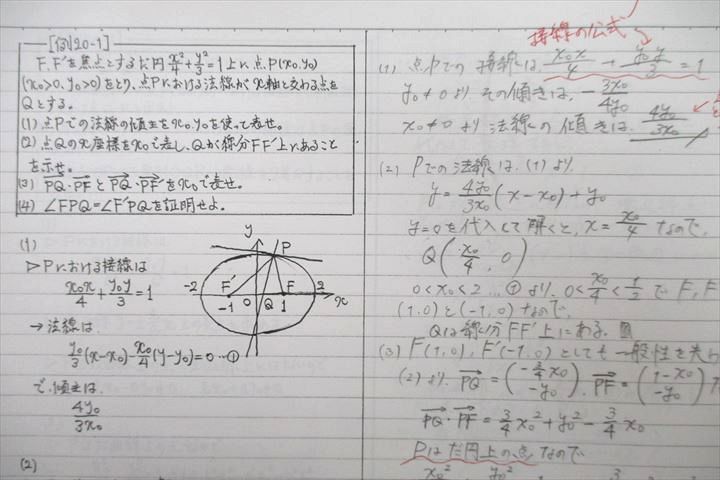 [例20-1]
F, F'を焦点とするだ円 x²/4 + y²/3 = 1 上に点P(x₀, y₀)
(x₀>0, y₀>0)をとり、点Pにおける法線がx軸と交わる点を
Qとする。
(1) 点Pでの法線の傾きをx₀, y₀を使って表せ。
(2) 点Qのx座標をx₀で表し、Qが線分FF'上にあること
を示せ。
(3) PQ・PFとPQ・PF'をx₀で表せ。
(4) ∠FPQ=∠F'PQを証明せよ。
(1)
▷Pにおける接線は
x₀x/4 + y₀y/3 = 1
→法線は、
y₀/3 (x-x₀) - x₀/4 (y-y₀) = 0 …①
で、傾きは、
4y₀/3x₀
(2)
y
P
-2
F'
F
2
-1
0
Q
1
x
接線の公式
(1) 点Pでの接線は、x₀x/4 + y₀y/3 = 1
y₀≠0より その傾きは、-3x₀/4y₀
x₀≠0より 法線の傾きは、4y₀/3x₀
(2) Pでの法線は、(1)より、
y = 4y₀/3x₀ (x-x₀) + y₀
y=0を代入して解くと、x = x₀/4 なので、
Q(x₀/4, 0)
0<x₀<2 …①より、0<x₀/4<1/2 で F, F'
(1,0)と(-1,0)なので、
Qは線分FF'上にある。
(3) F(1,0), F'(-1,0)としても一般性を失
(2)より、PQ = (-3/4 x₀, -y₀), PF = (1-x₀, -y₀)
PQ・PF = 3/4 x₀² + y₀² - 3/4 x₀
Pはだ円上の点なので
x₀² y₀²